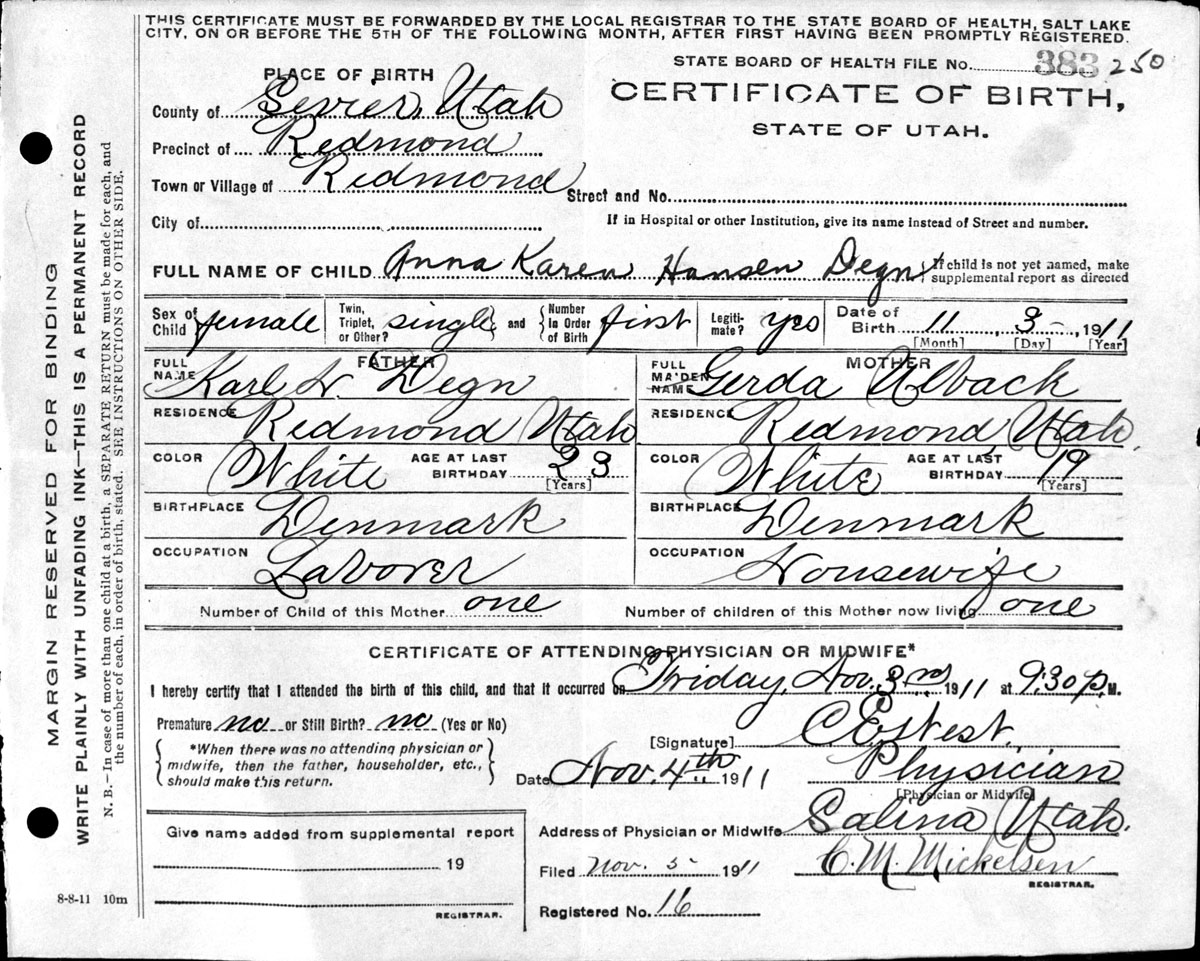 THIS CERTIFICATE MUST BE FORWARDED BY THE LOCAL REGISTRAR TO THE STATE BOARD OF HEALTH, SALT LAKE
CITY, ON OR BEFORE THE 5TH OF THE FOLLOWING MONTH, AFTER FIRST HAVING BEEN PROMPTLY REGISTERED.
STATE BOARD OF HEALTH FILE No. 383 250
CERTIFICATE OF BIRTH,
STATE OF UTAH.
PLACE OF BIRTH
County of Sevier, Utah
Precinct of Redmond
Town or Village of Redmond Street and No.
City of If in Hospital or other Institution, give its name instead of Street and number.
FULL NAME OF CHILD Anna Karen Hansen Degn { If child is not yet named, make
supplemental report as directed
Sex of Child female Twin, Triplet, or Other? single and Number In Order of Birth first Legitimate? yes Date of Birth 11 3 1911
[Month] [Day] [Year]
FATHER
FULL NAME Karl N. Degn
RESIDENCE Redmond Utah
COLOR White AGE AT LAST BIRTHDAY 23
[Years]
BIRTHPLACE Denmark
OCCUPATION Laborer
MOTHER
FULL MAIDEN NAME Gerda
RESIDENCE Redmond Utah.
COLOR White AGE AT LAST BIRTHDAY 19
[Years]
BIRTHPLACE Denmark
OCCUPATION Housewife
Number of Child of this Mother one Number of children of this Mother now living one
CERTIFICATE OF ATTENDING PHYSICIAN OR MIDWIFE*
I hereby certify that I attended the birth of this child, and that it occurred on Friday, Nov. 3rd 1911 at 9:30 P. M.
Premature no or Still Birth? no (Yes or No)
*When there was no attending physician or
midwife, then the father, householder, etc.,
should make this return.
[Signature]
Date Nov. 4th 1911 Physician
[Physician or Midwife]
Address of Physician or Midwife Salina Utah.
Filed Nov. 5 1911 C. M. Mickelsen
REGISTRAR.
Registered No. 16
Give name added from supplemental report
19
REGISTRAR.
8-8-11 10m
MARGIN RESERVED FOR BINDING
WRITE PLAINLY WITH UNFADING INK—THIS IS A PERMANENT RECORD
N. B.—In case of more than one child at a birth, a SEPARATE RETURN must be made for each, and
the number of each, in order of birth, stated. SEE INSTRUCTIONS ON OTHER SIDE.